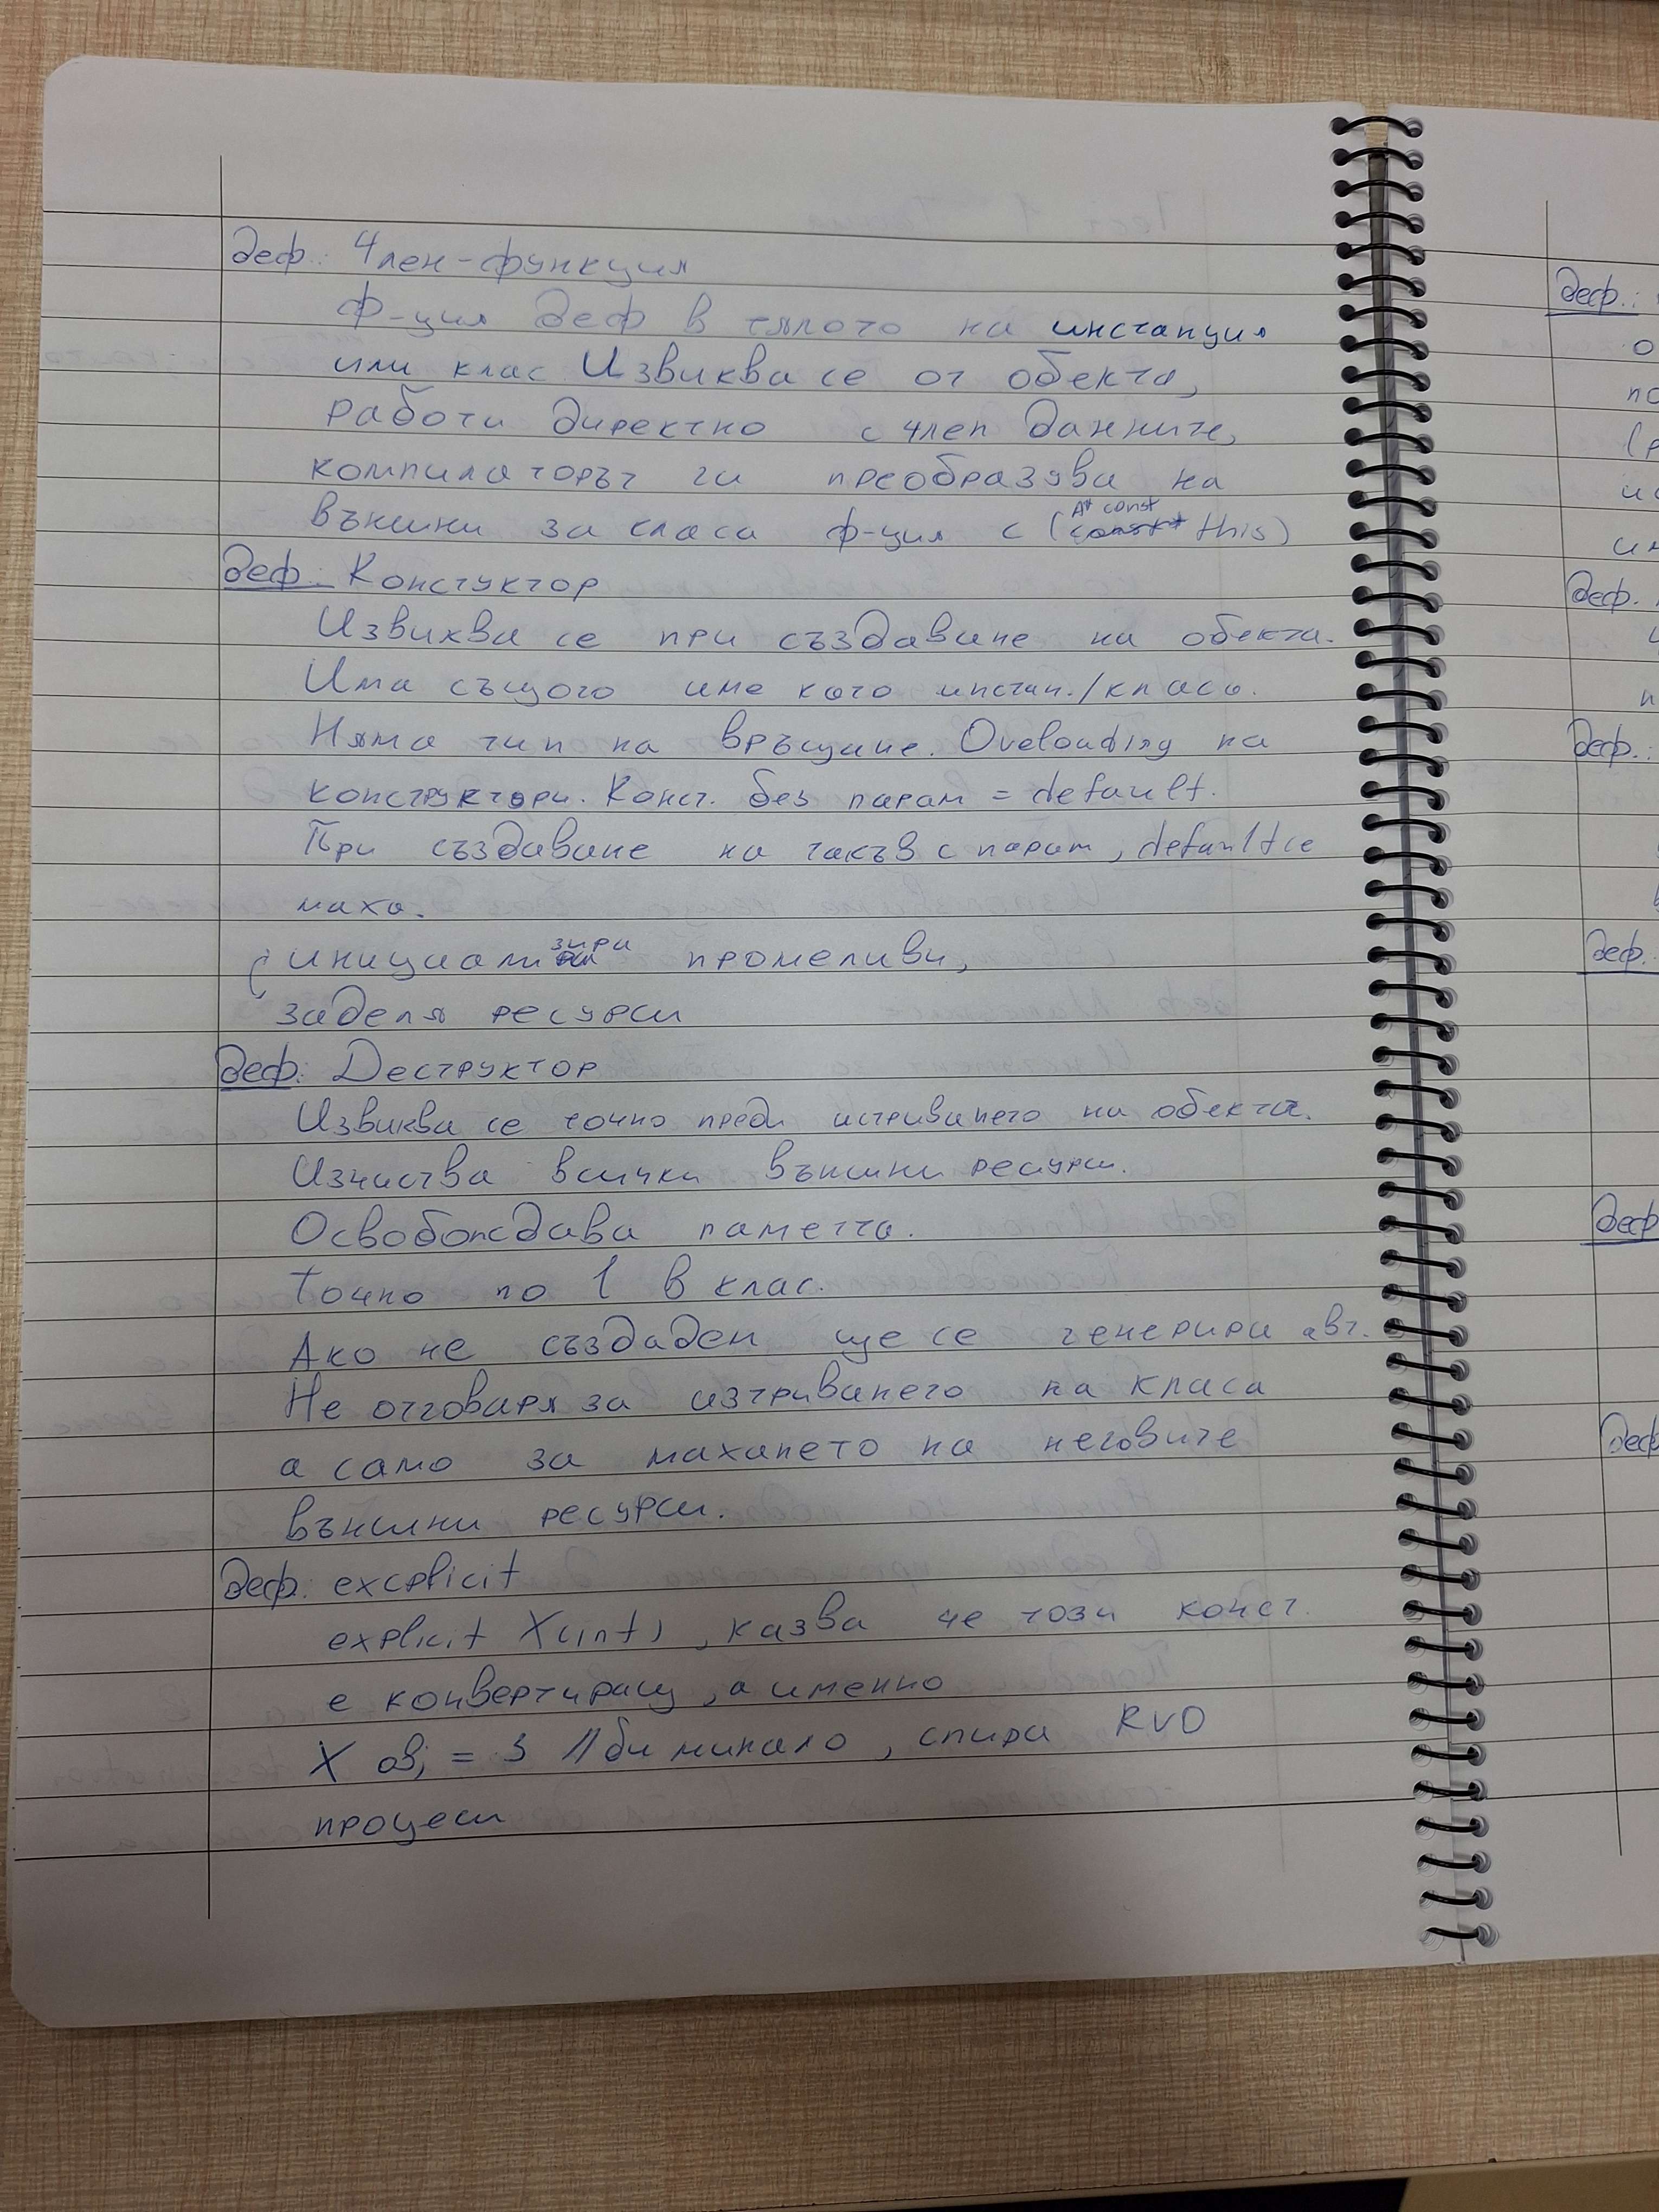 деф.: Член-функция
ф-ция деф в тялото на инстанция
или клас Извиква се от обекта,
работи директно с член данните,
компилаторът ги преобразува на
външни за класа ф-ция с (A* const this)
деф: Констуктор
Извиква се при създаване на обекта.
Има същото име като инстан./класа.
Няма тип на връщане. Oveloading на
конструктори. Конст. без парам = default.
При създаване на такъв с парам, default се
маха.
инициализира промеливи,
заделя ресурси
деф: Деструктор
Извиква се точно преди истриването на обекта.
Изчиства всички външни ресурси.
Освобождава паметта.
Точно по 1 в клас.
Ако не създаден ще се генерира авт.
Не отговаря за изтриването на класа
а само за махането на неговите
външни ресурси.
деф: excplicit
explicit X(int), казва че този конст.
е конвертиращ, а именно
X obj = 3 // би минало, спира RVO
процеси
деф.:
деф.
деф.:
деф.
деф
деф